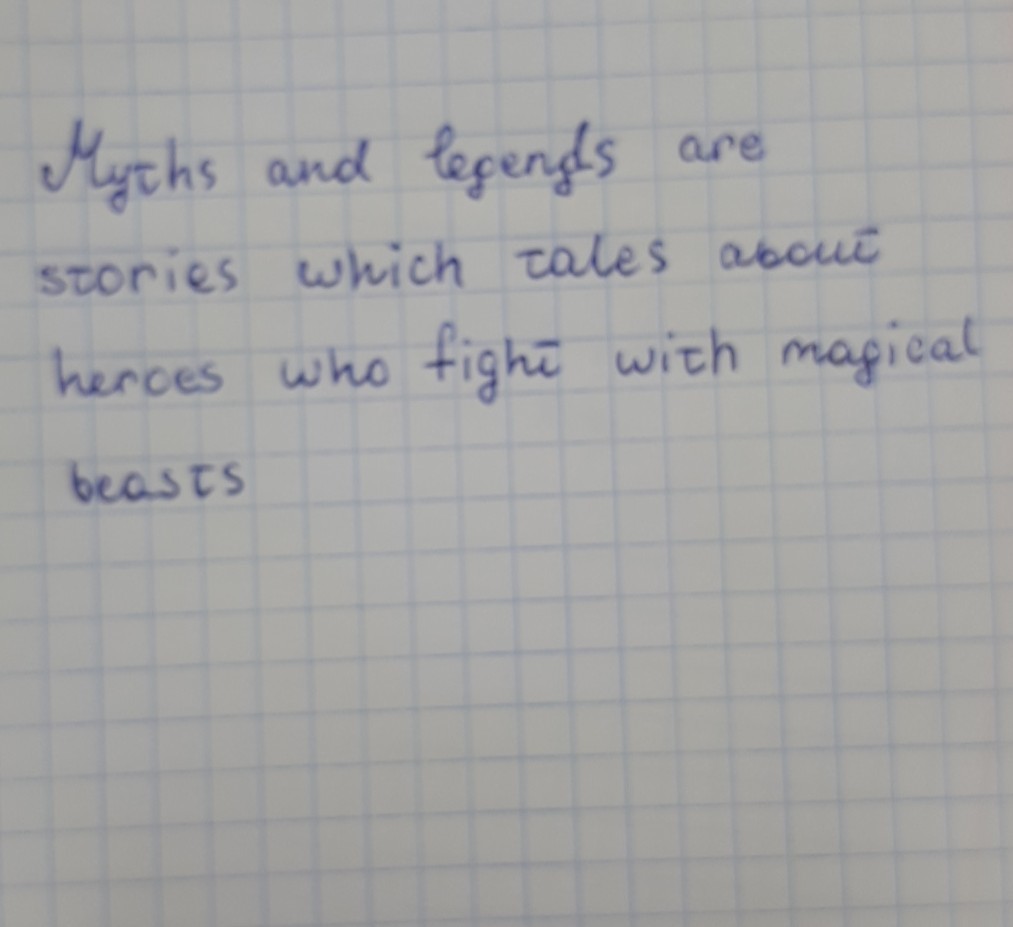 Myths and legends are
stories which tales about
heroes who fight with magical
beasts